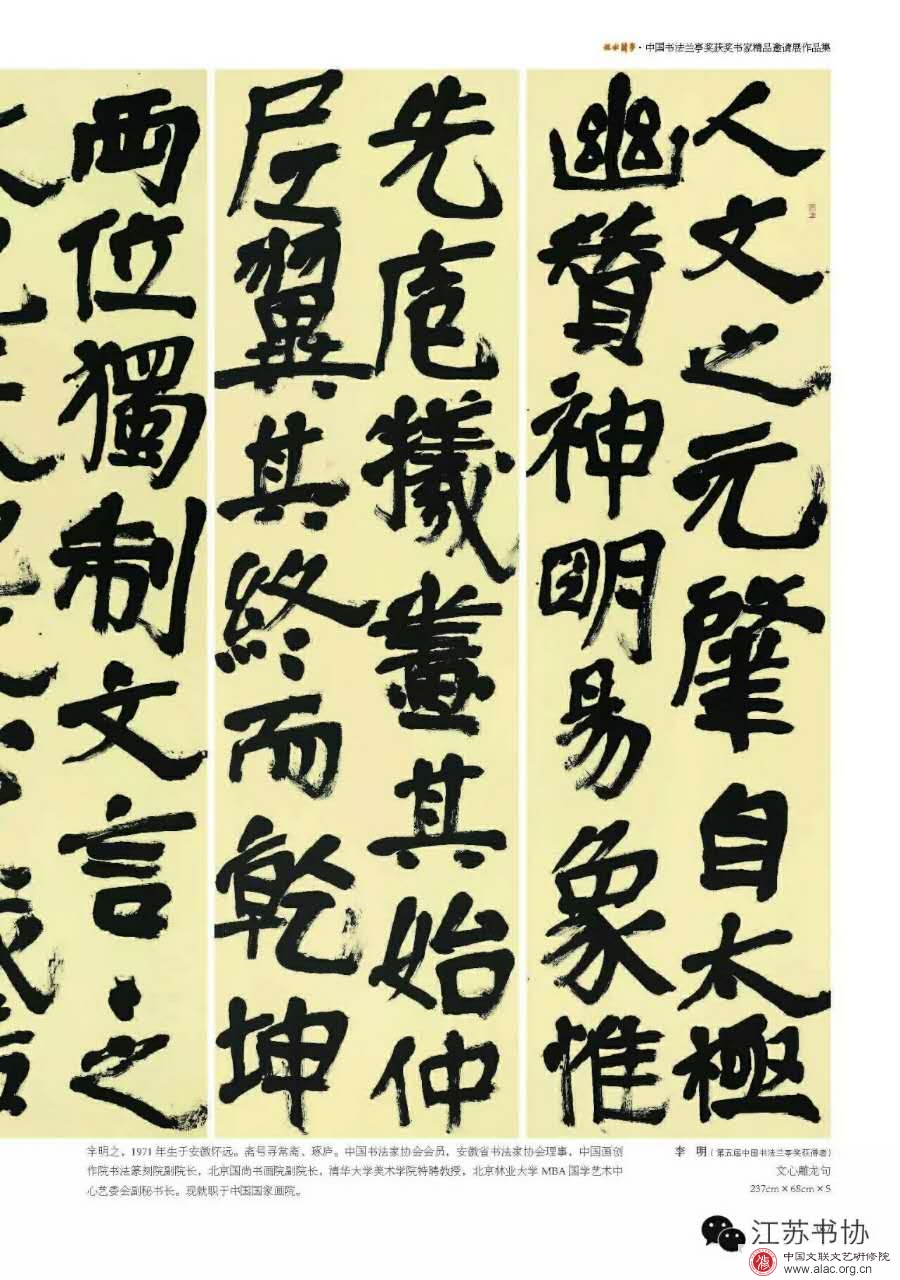 ·中国书法兰亭奖获奖书家精品邀请展作品集
人文之元肇自太極
幽贊神明易象惟
先庖犧畫其始仲
尼翼其終而乾坤
兩位獨制文言〻之
李明之，1971 年生于安徽怀远。斋号寻常斋、琢庐。中国书法家协会会员，安徽省书法家协会理事，中国画创
作院书法篆刻院副院长，北京国尚书画院副院长，清华大学美术学院特聘教授，北京林业大学 MBA 国学艺术中
心艺委会副秘书长。现就职于中国国家画院。
李 明（第五届中国书法兰亭奖获得者）
文心雕龙句
237cm×68cm×5
江苏书协
中国文联文艺研修院
www.alac.org.cn